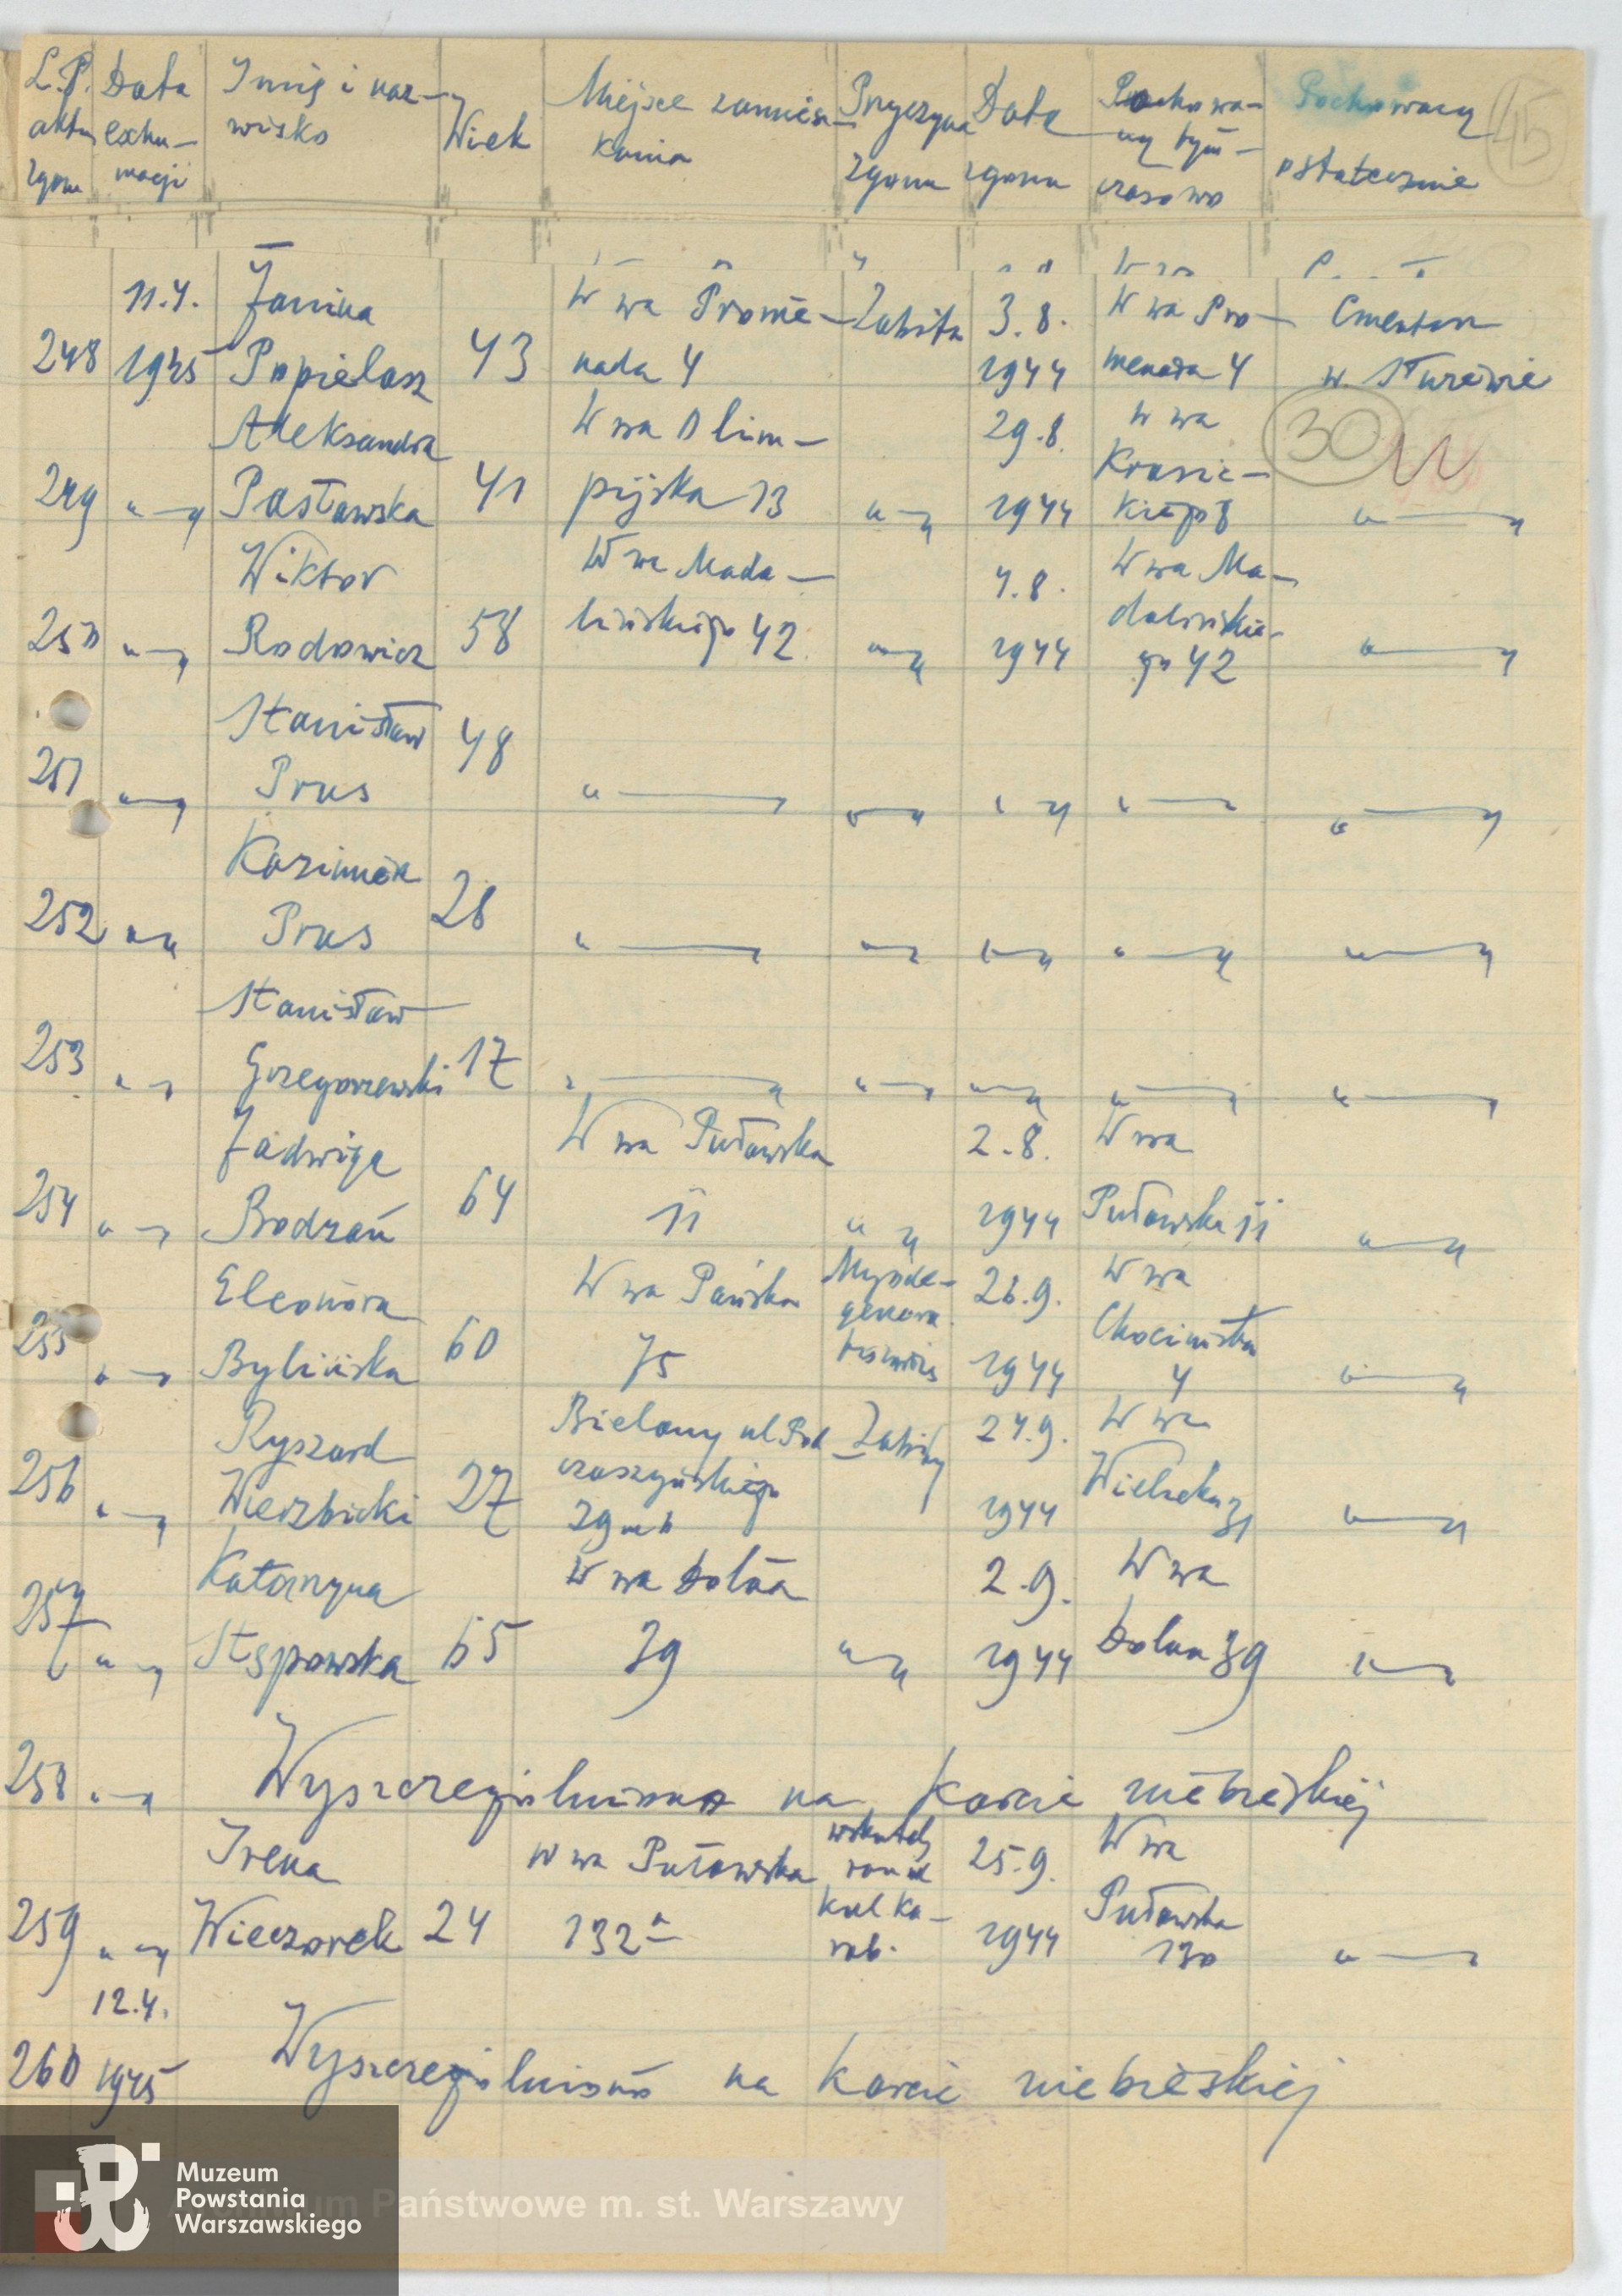 L.P. aktu zgonu | Data exhumacji | Imię i nazwisko | Wiek | Miejsce zamieszkania | Przyczyna zgonu | Data zgonu | Pochowany tymczasowo | Pochowany ostatecznie
45
11.4. Janina W wa Prome- Zabita 3.8. W wa Pro- Cmentarz
248 1945 Popielasz 43 nada 4 1944 menada 4 w
30
Aleksandra W wa Olim- 29.8. W wa
249 " — " Pastawska 41 pijska 13 " — " 1944 Krasickiego 8 " — "
Wiktor W wa Mada- 4.8. W wa Ma-
250 " — " Rodowicz 58 lińskiego 42 " — " 1944 dalińskiego 42 " — "
Stanisław 48
251 " — " Prus " — " " — " " — " " — " " — "
Kazimierz 28
252 " — " Prus " — " " — " " — " " — " " — "
Stanisław
253 " — " Grzegorzewski 17 " — " " — " " — " " — " " — "
Jadwiga W wa Puławska 2.8. W wa
254 " — " Brodzań 64 11 " — " 1944 Puławska 11 " — "
Eleonora W wa Pańska 26.9. W wa
255 " — " Bylińska 60 75 1944 Chocimska 4 " — "
Ryszard Bielany ul Zabity 24.9. W wa
256 " — " Wierzbicki 27 29 m 6 1944 31 " — "
Katarzyna W wa Dolna 2.9. W wa
257 " — " Stępowska 65 39 " — " 1944 Dolna 39 " — "
258 " — " Wyszczególniono na karcie niebieskiej
Irena W wa Puławska wskutek ran 25.9. W wa
259 " — " Wieczorek 24 132a kul karab. 1944 Puławska 130 " — "
12.4.
260 1945 Wyszczególniono na karcie niebieskiej
Muzeum
Powstania
Warszawskiego
Państwowe m. st. Warszawy